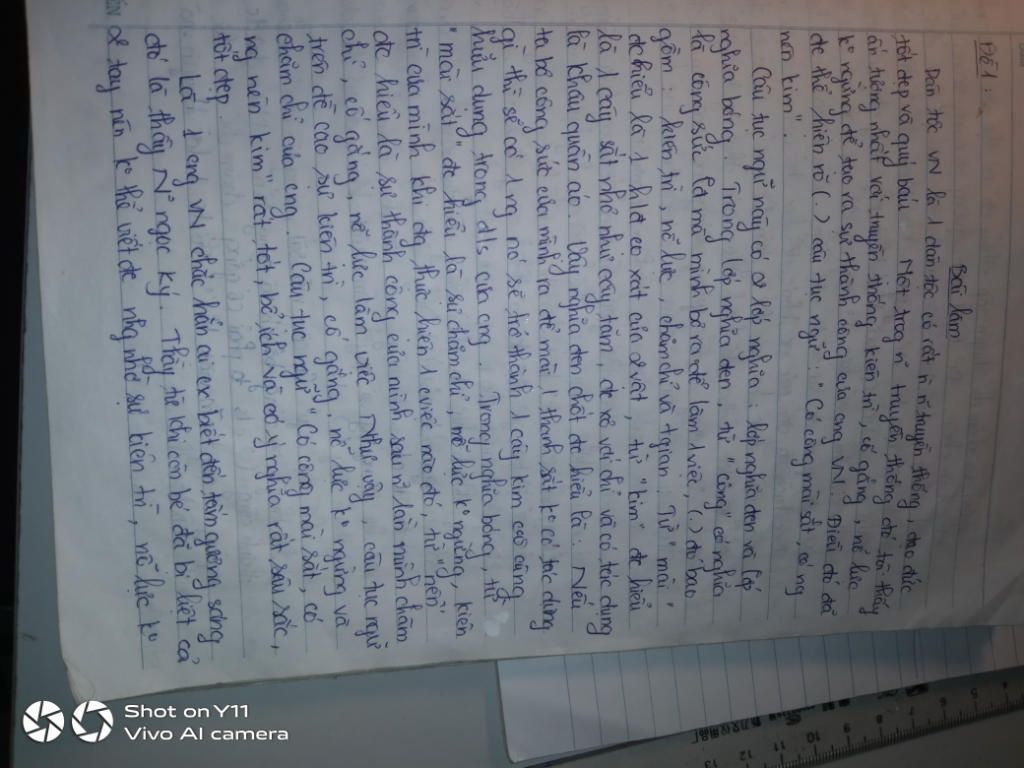 Đề 1:
Bài làm
Dân tộc VN là 1 dân tộc có rất n` n~ truyền thống, đạo đức
tốt đẹp và quý báu. Một trog n~ truyền thống đó, ta thấy
ấn tượng nhất với truyền thống kiên trì, cố gắng, nỗ lực
ko ngừng để tạo ra sự thành công của ông VN. Điều đó đã
đc thể hiện rõ (.) câu tục ngữ: "Có công mài sắt, có ng
nên kim".
Câu tục ngữ này có 2 lớp nghĩa: lớp nghĩa đen và lớp
nghĩa bóng. Trong lớp nghĩa đen, từ "công" có nghĩa
là công sức là mà mình bỏ ra để làm 1 việc, (.) đó bao
gồm: kiên trì, nỗ lực, chăm chỉ và tgian. Từ "mài"
đc hiểu là 1 hđ cọ xát của 2 vật, từ "kim" đc hiểu
là 1 cây sắt nhỏ như cây tăm, đc xỏ với chỉ và có tác dụng
là khâu quần áo. Vậy nghĩa đen chốt đc hiểu là: Nếu
ta bỏ công sức của mình ra để mài 1 thanh sắt ko có tác dụng
gì thì sẽ có 1 ng nó sẽ trở thành 1 cây kim vô cùng
hữu dụng trong đ/s của cng. Trong nghĩa bóng, từ
"mài sắt" đc hiểu là sự chăm chỉ, nỗ lực ko ngừng, kiên
trì của mình khi đg thực hiện 1 cviệc nào đó, từ "nên"
đc hiểu là sự thành công của mình sau n` lần mình chăm
chỉ, cố gắng, nỗ lực làm việc. Như vậy, câu tục ngữ
trên đề cao sự kiên trì, cố gắng, nỗ lực ko ngừng và
chăm chỉ của cng. Câu tục ngữ "Có công mài sắt, có
ng nên kim" rất tốt, bổ ích và có ý nghĩa rất sâu sắc,
tốt đẹp.
Là 1 cng VN chắc hẳn ai cx biết đến tấm gương sáng
đó là thầy N~ ngọc Ký. Thầy từ khi còn bé đã bị liệt cả
2 tay nên ko thể viết đc nhg nhờ sự kiên trì, nỗ lực ko
Shot on Y11
Vivo AI camera
4
5
6
7
8
9
10
11
12
13